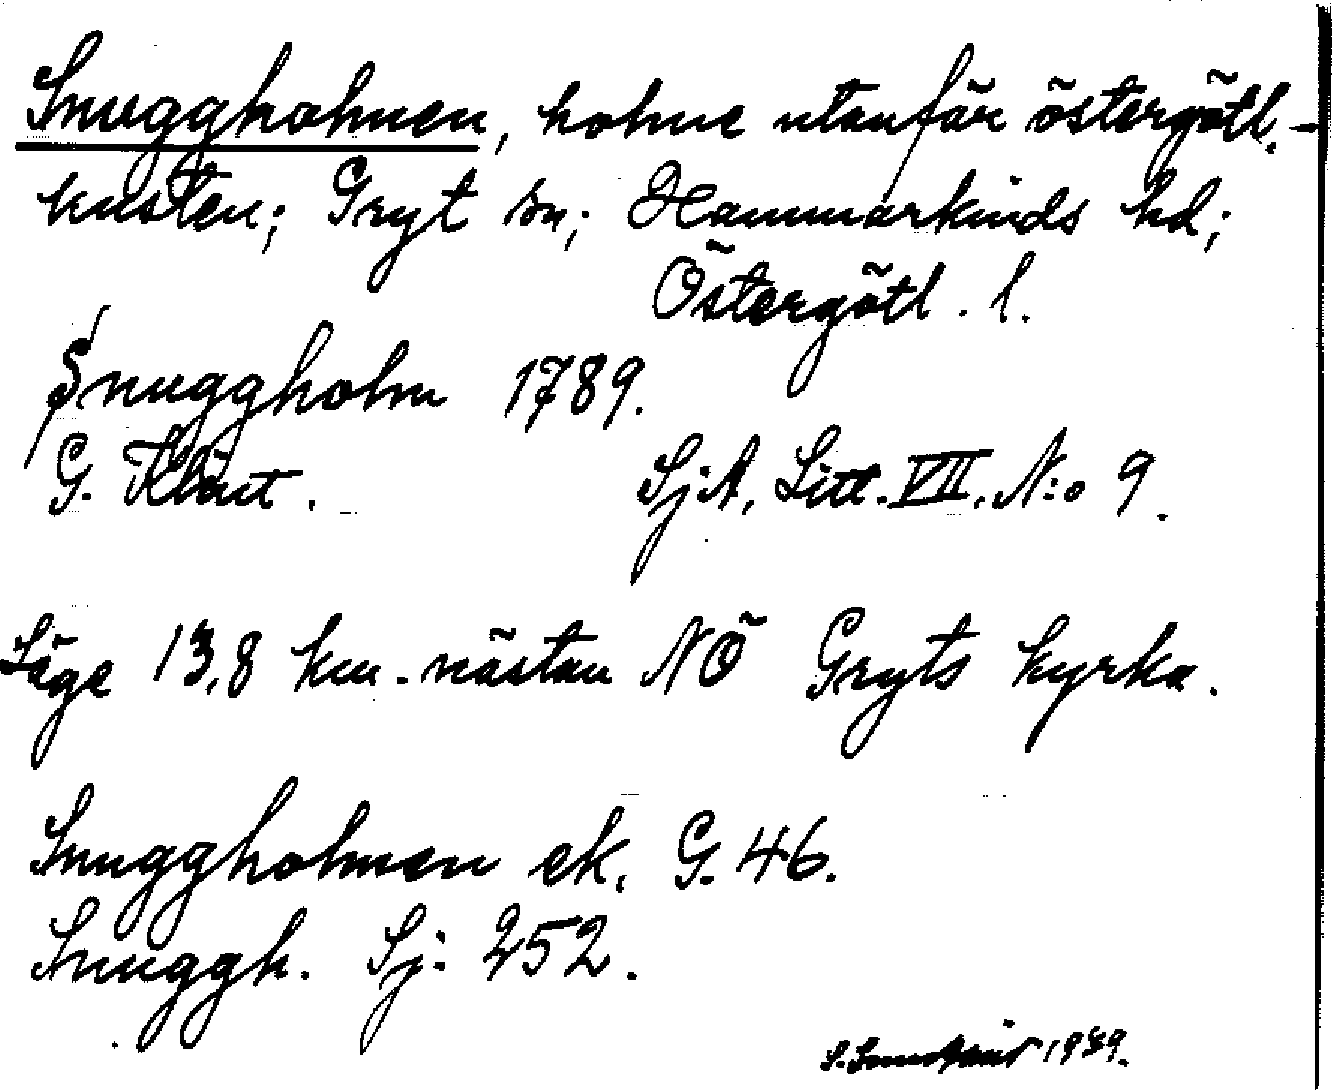 Snuggholmen, holme utanför östergötl.-
kusten; Gryt sn; Hammarkinds hd;
Östergötl. l.
Snuggholm 1789.
G. Klint. SjA, Litt. VII. N:o 9.
Läge 13,8 km. nästan NÖ Gryts kyrka.
Snuggholmen ek. G. 46.
Snuggh. Sj: 252.
1939.